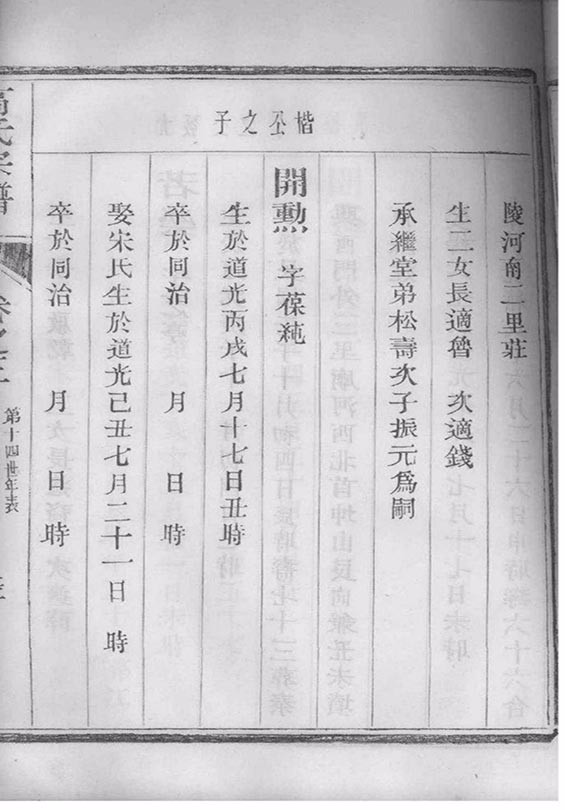 陵河南二里莊
生二女長適魯　次適錢
承繼堂弟松壽次子振元爲嗣
楷公之子
開勲　字葆純
生於道光丙戌七月十七日丑時
卒於同治　月　日　時
娶宋氏生於道光己丑七月二十一日　時
卒於同治　月　日　時
氏宗譜
卷之
第十四世年表